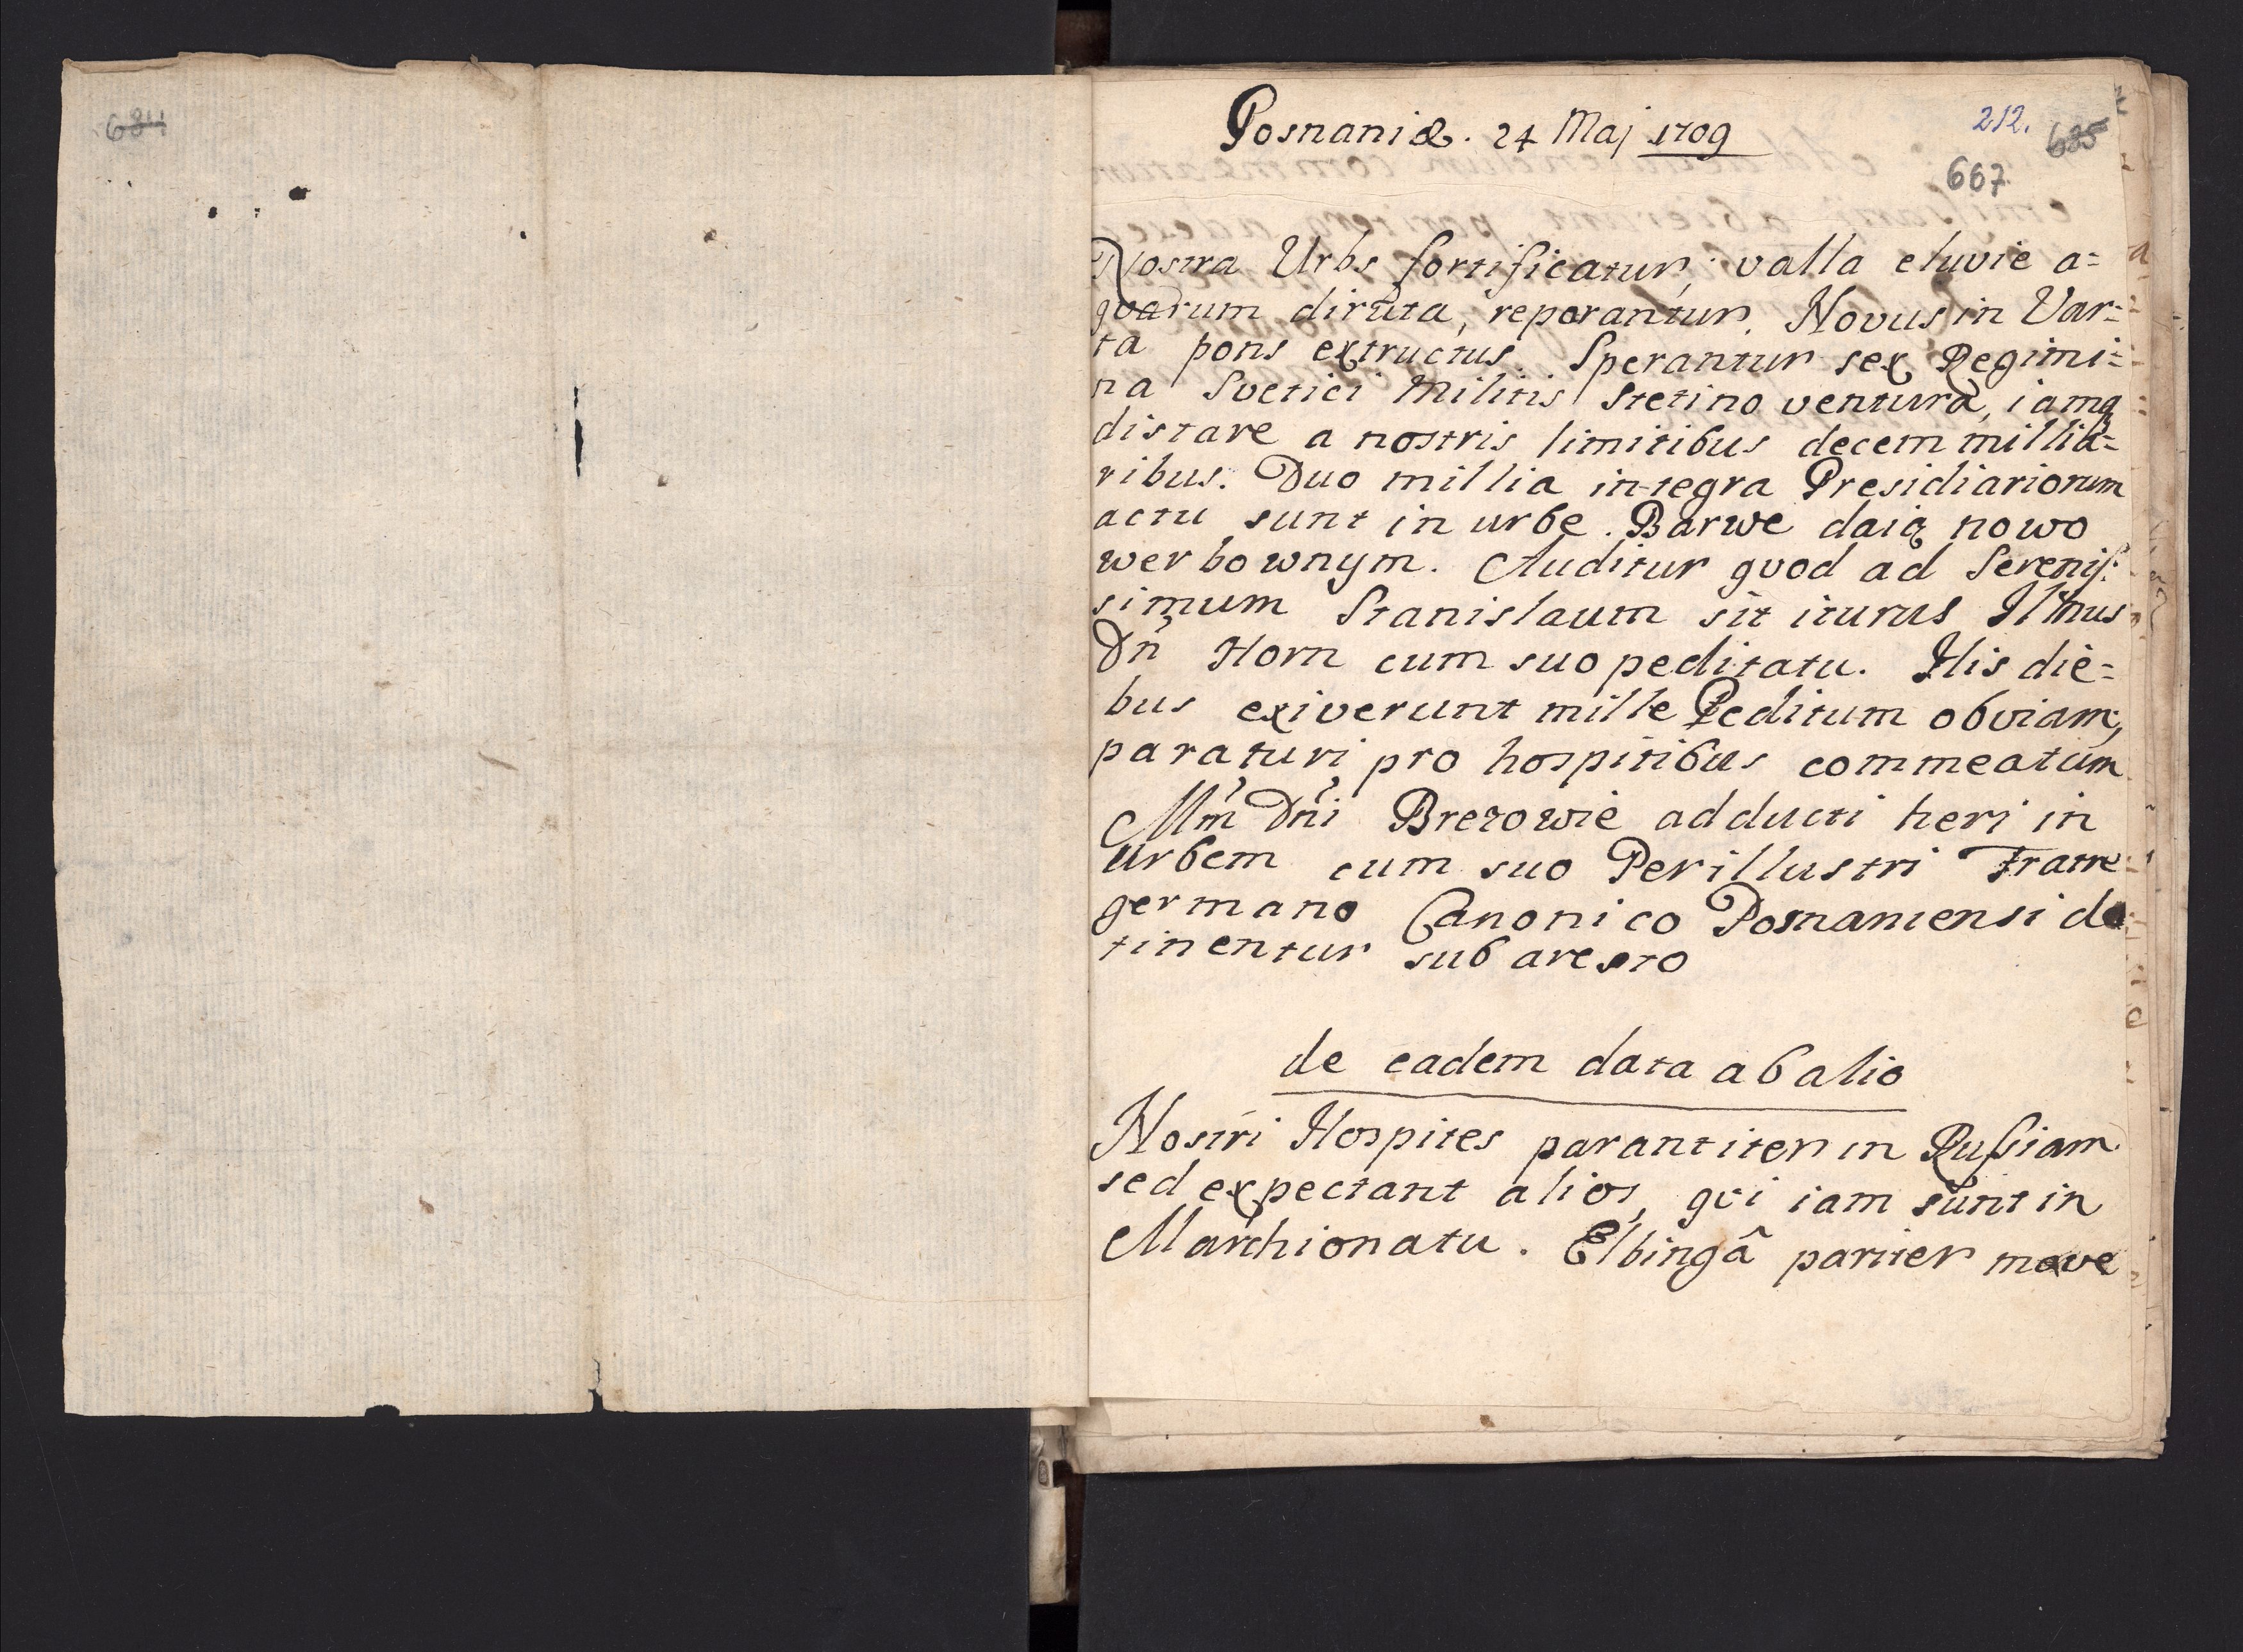 684
Posnaniæ. 24 Maj 1709
212.
685
667
Nostra Urbs fortificatur, valla eluvie a=
quarum diruta, reparantur. Novus in Var=
ta pons extructus. Sperantur sex Regimi=
na Svetici Militis Stetino ventura, iamq
distare a nostris limitibus decem millia=
ribus. Duo millia integra Presidiariorum
actu sunt in urbe. Barwe daią nowo
werbownym. Auditur quod ad Serenis:
simum Stanislaum sit iturus Illmus
Dn̄ Horn cum suo peditatu. His die=
bus exiverunt mille Peditum obviam,
paraturi pro hospitibus commeatum
Mm̄ Dn̄i Brezowie adducti heri in
urbem cum suo Perillustri Fratre
germano Canonico Posnaniensi de
tinentur sub aresto
de eadem data ab alio
Nostri Hospites parant iter in Russiam
sed expectant alios, qvi iam sunt in
Marchionatu. Elbingâ pariter move